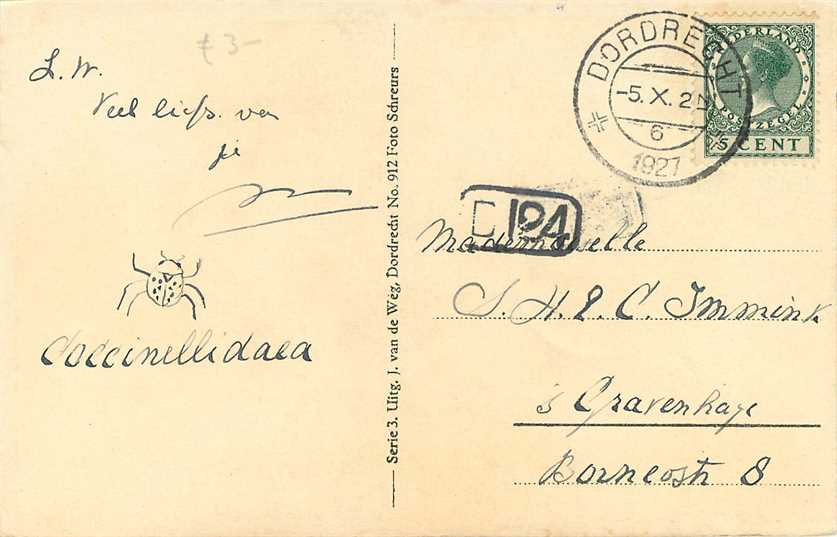 £ 3-
L. W.
Veel liefs van
je
Coccinellidaea
Serie 3. Uitg. J. van de Weg, Dordrecht No. 912 Foto Schreurs
DORDRECHT
-5.X.27
6
1927
NEDERLAND
POSTZEGEL
5 CENT
D 194
Mademoiselle
S. H. & C. Immink
's Gravenhage
Borneostr 8